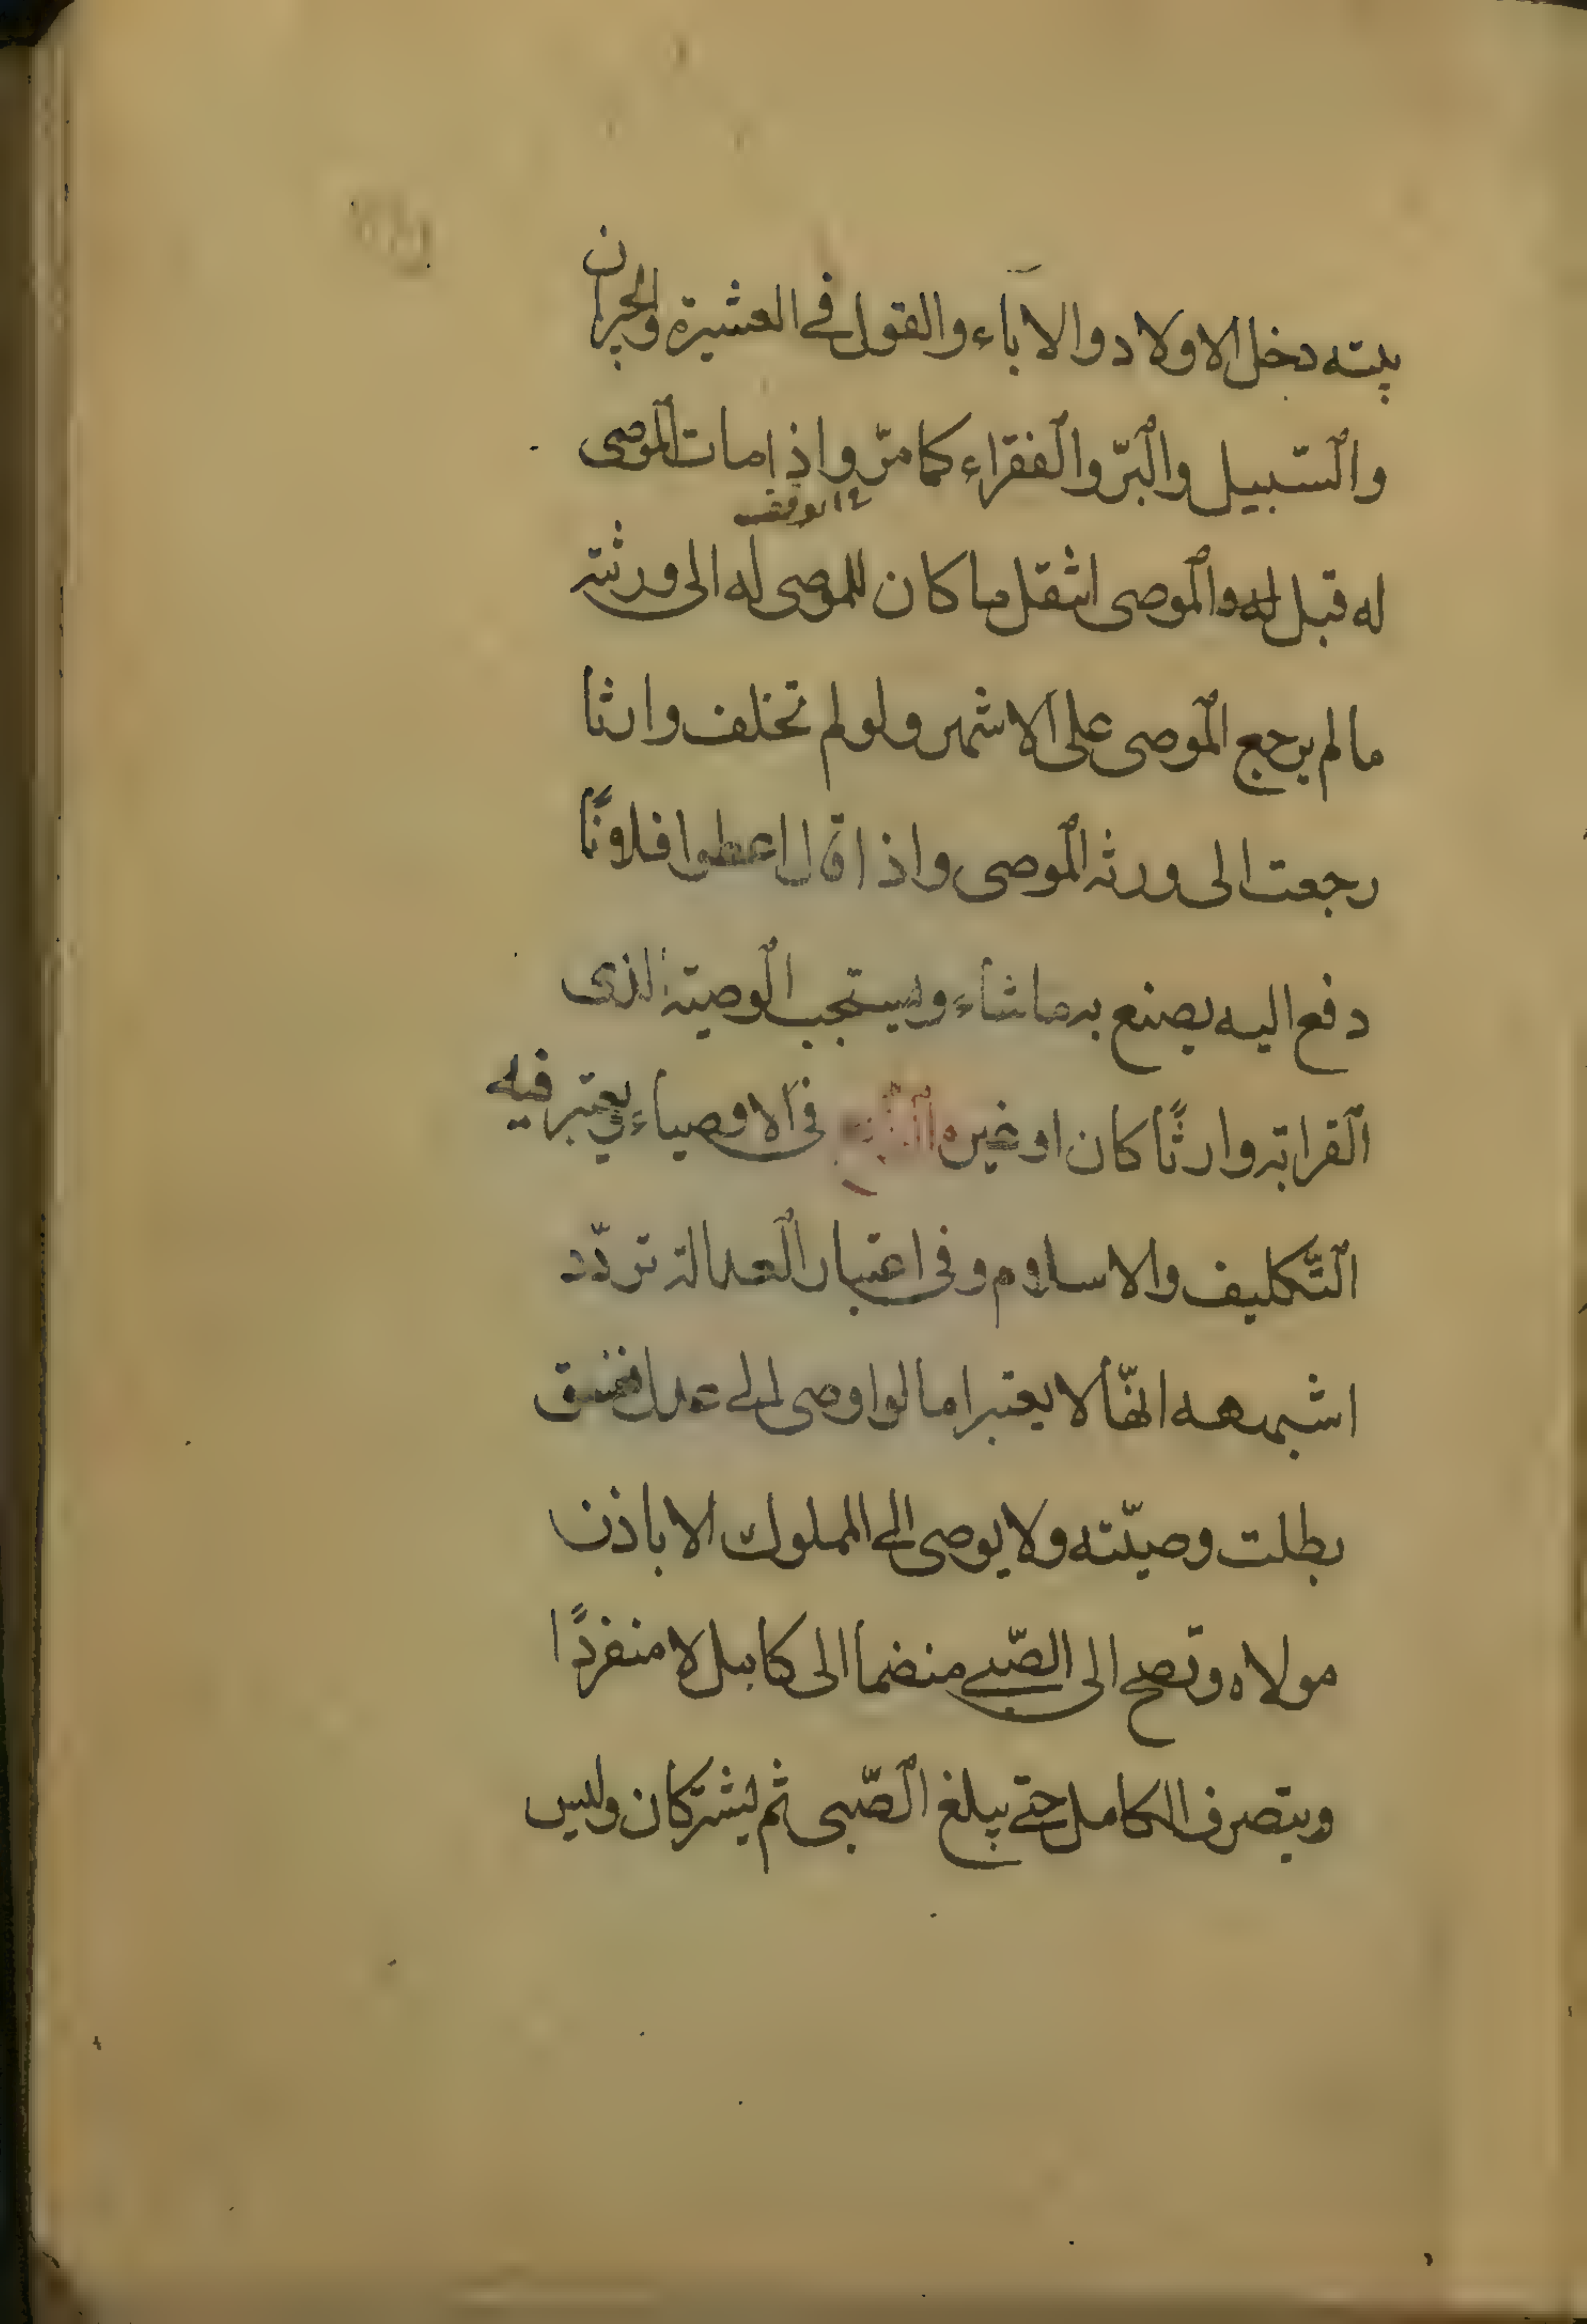 بيته دخل الاولاد والاباء والقول في العشيرة والجيران
والسّبيل والبرّ والفقراء كما مرّ واذا مات الموصى
في الوقف
له قبل له والموصى انتقل ما كان للموصى له الى ورثته
ما لم يرجع الموصى على الاشهر ولو لم تخلف وارثا
رجعت الى ورثه الموصى واذا قال اعطوا فلانًا
دفع اليه يصنع به ما شاء ويستحب الوصيّة لذى
القرابة وارثًا كان او غيره في الاوصياء يعتبر فيه
التّكليف والاسلام وفي اعتبار العدالة تردّد
اشبهه انّها لا يعتبر اما لو اوصى الى عدل ففسق
بطلت وصيّته ولا يوصى الى المملوك الا باذن
مولاه وتصح الى الصّبي منضما الى كامل لا منفردًا
ويتصرف الكامل حتى يبلغ الصّبي ثم يشتركان وليس